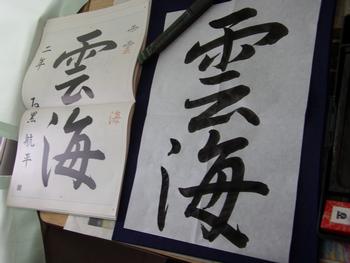 雲海
雲
海
二年
石黒航平
雲海